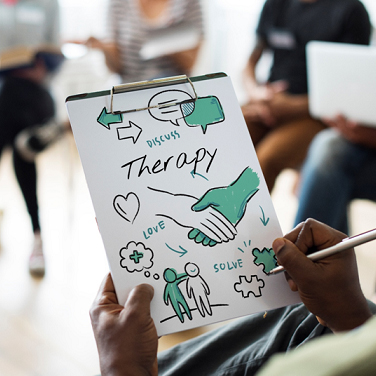 DISCUSS
Therapy
LOVE
SOLVE